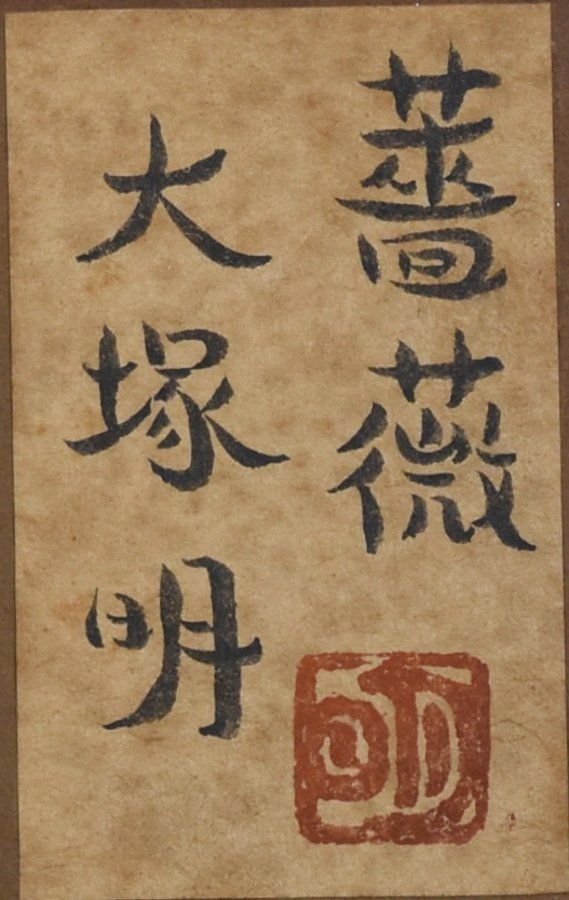 薔薇
大塚明
明